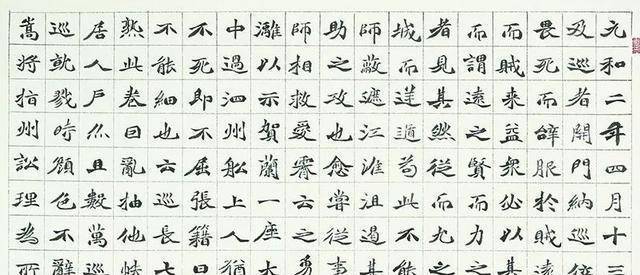 元和二年四月十三
及巡者開門納巡
畏死而辭服於賊遠
而賊來益衆必以其
而謂遠之賢而力
者見其然從而尤之
城而逆遁苟此不能
師蔽遮江淮沮遏其
助之攻也愈嘗從事
師相救愛霽云之勇
灕以示賀蘭一座大
中過泗州船上人猶
不死即不屈張籍曰
不能細也云巡長七
熱此卷因亂抽他帙
居人戶亦且數萬巡
巡就戮時顏色不辭
嵩將指州訟理為所